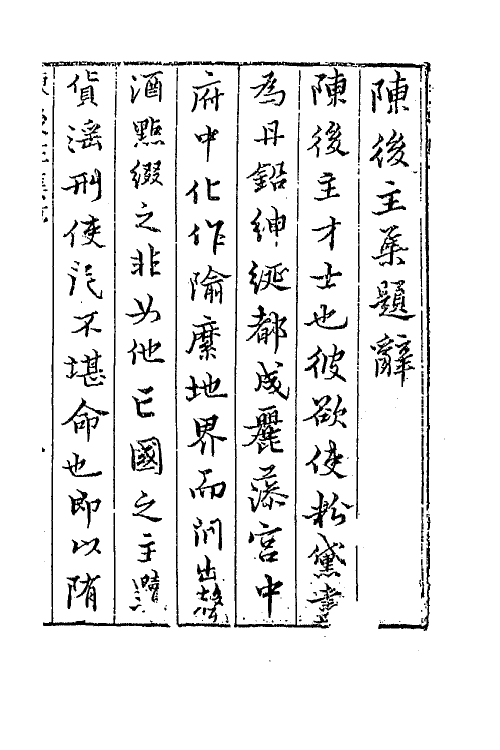 陳後主集題辭
陳後主才士也彼欲使粉黛盡
為丹鉛紳綖都成麗藻宮中
府中化作隃麋地界而閒出聲
酒點綴之非如他亡國之主黷
貨滛刑使民不堪命也即以隋